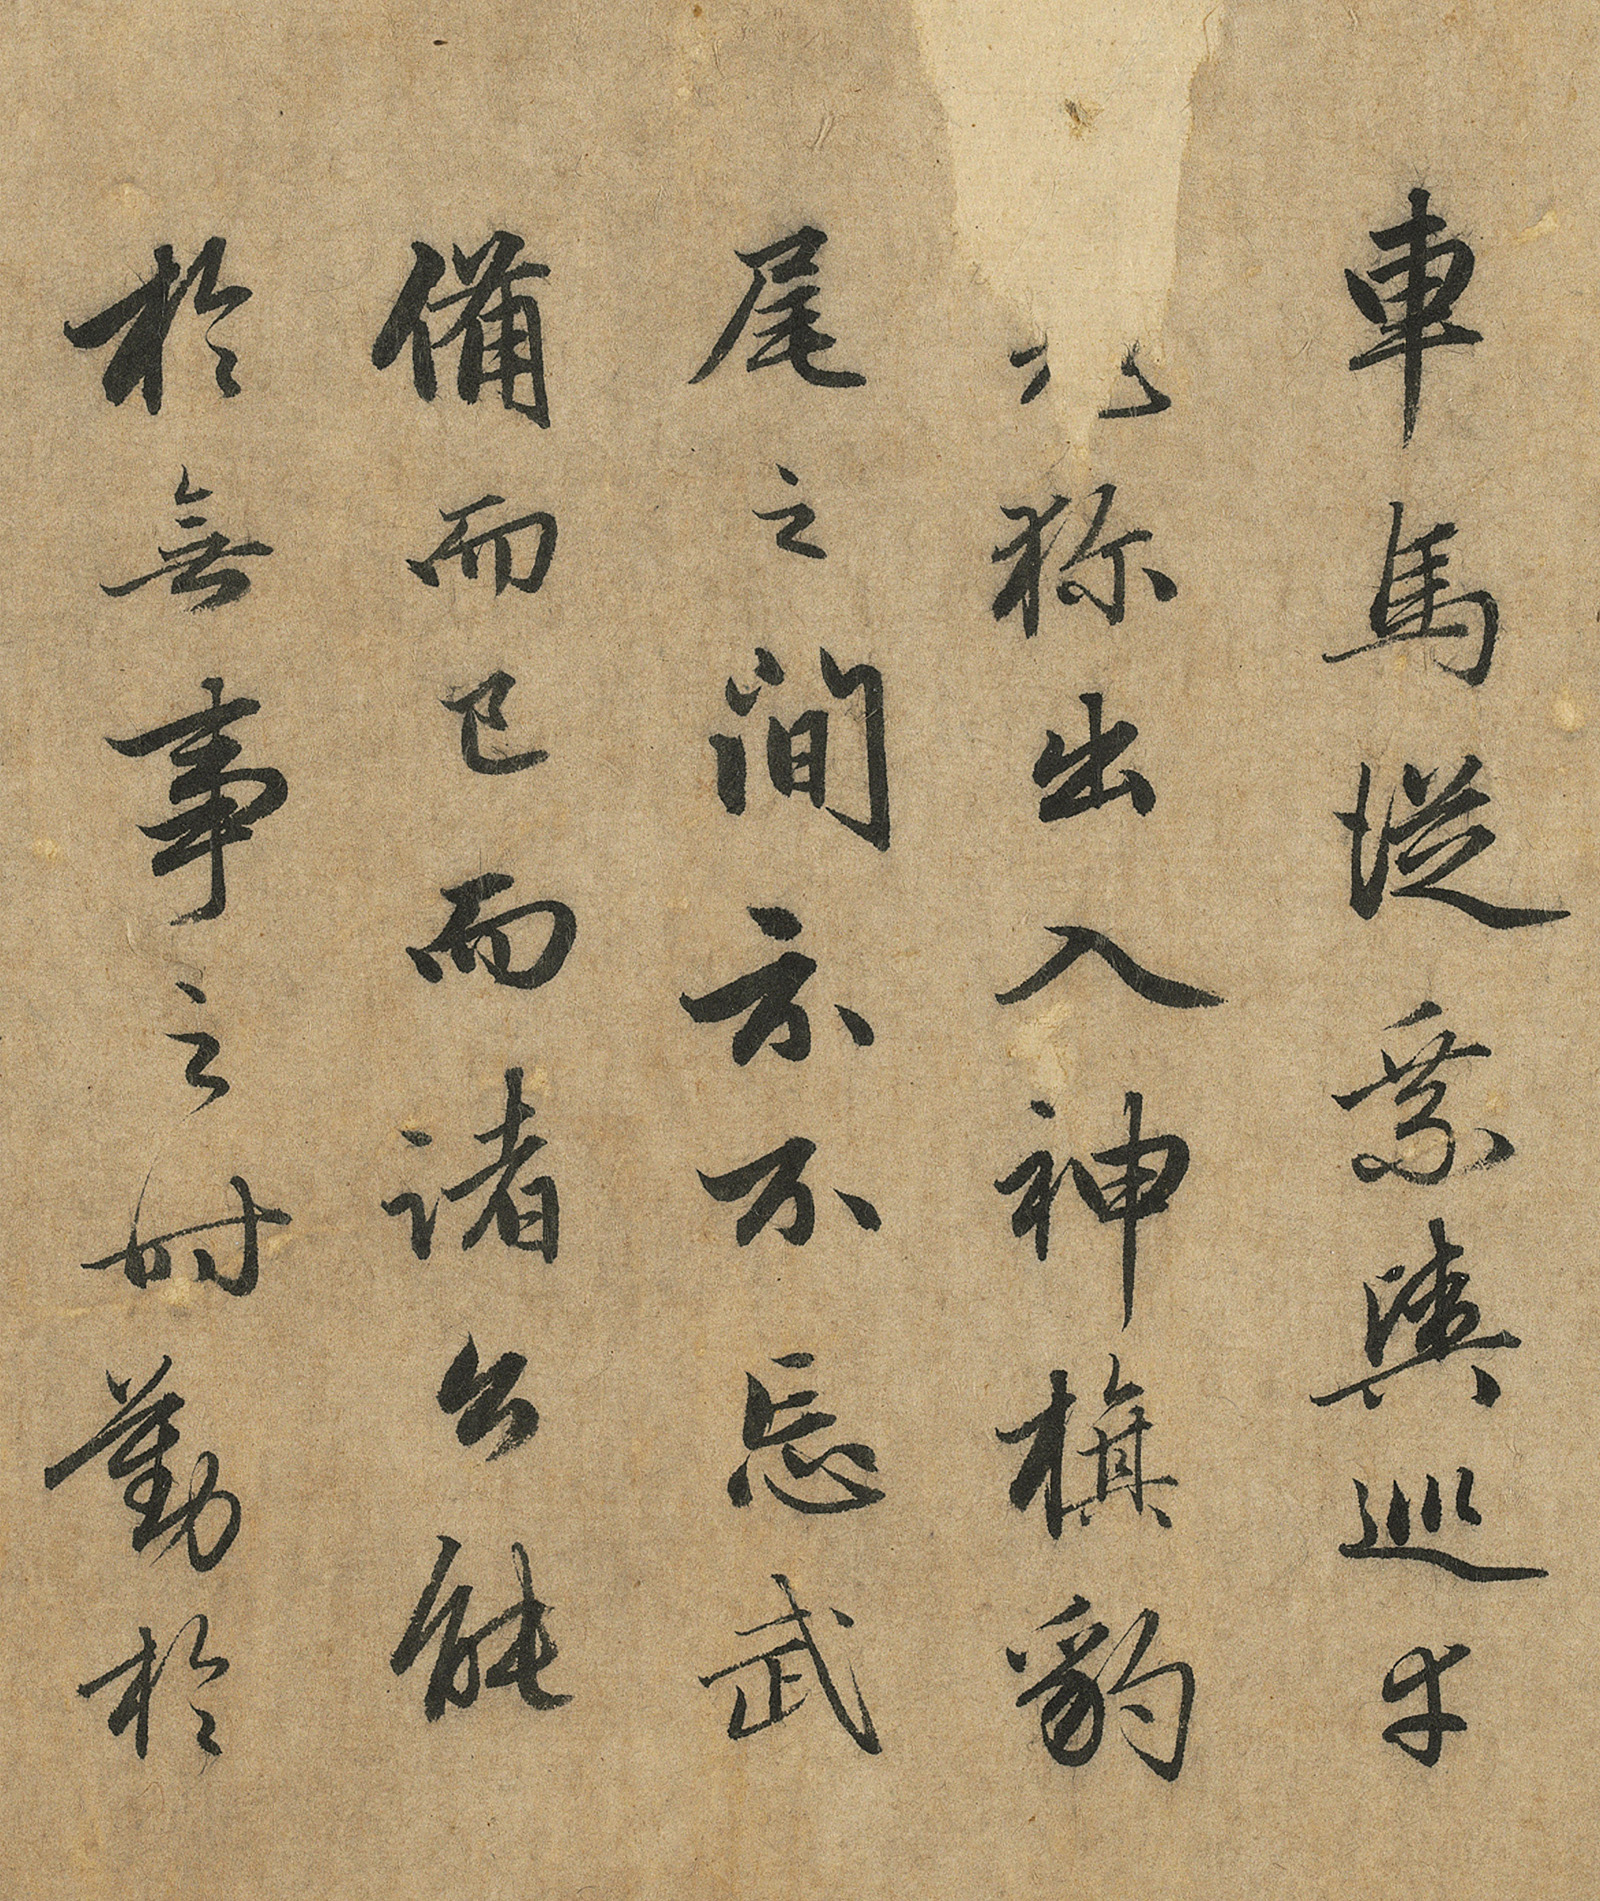 車馬從乘輿巡幸
狝出入神旗豹
尾之間亦不忘武
備而已而諸公能
於無事之時勤於